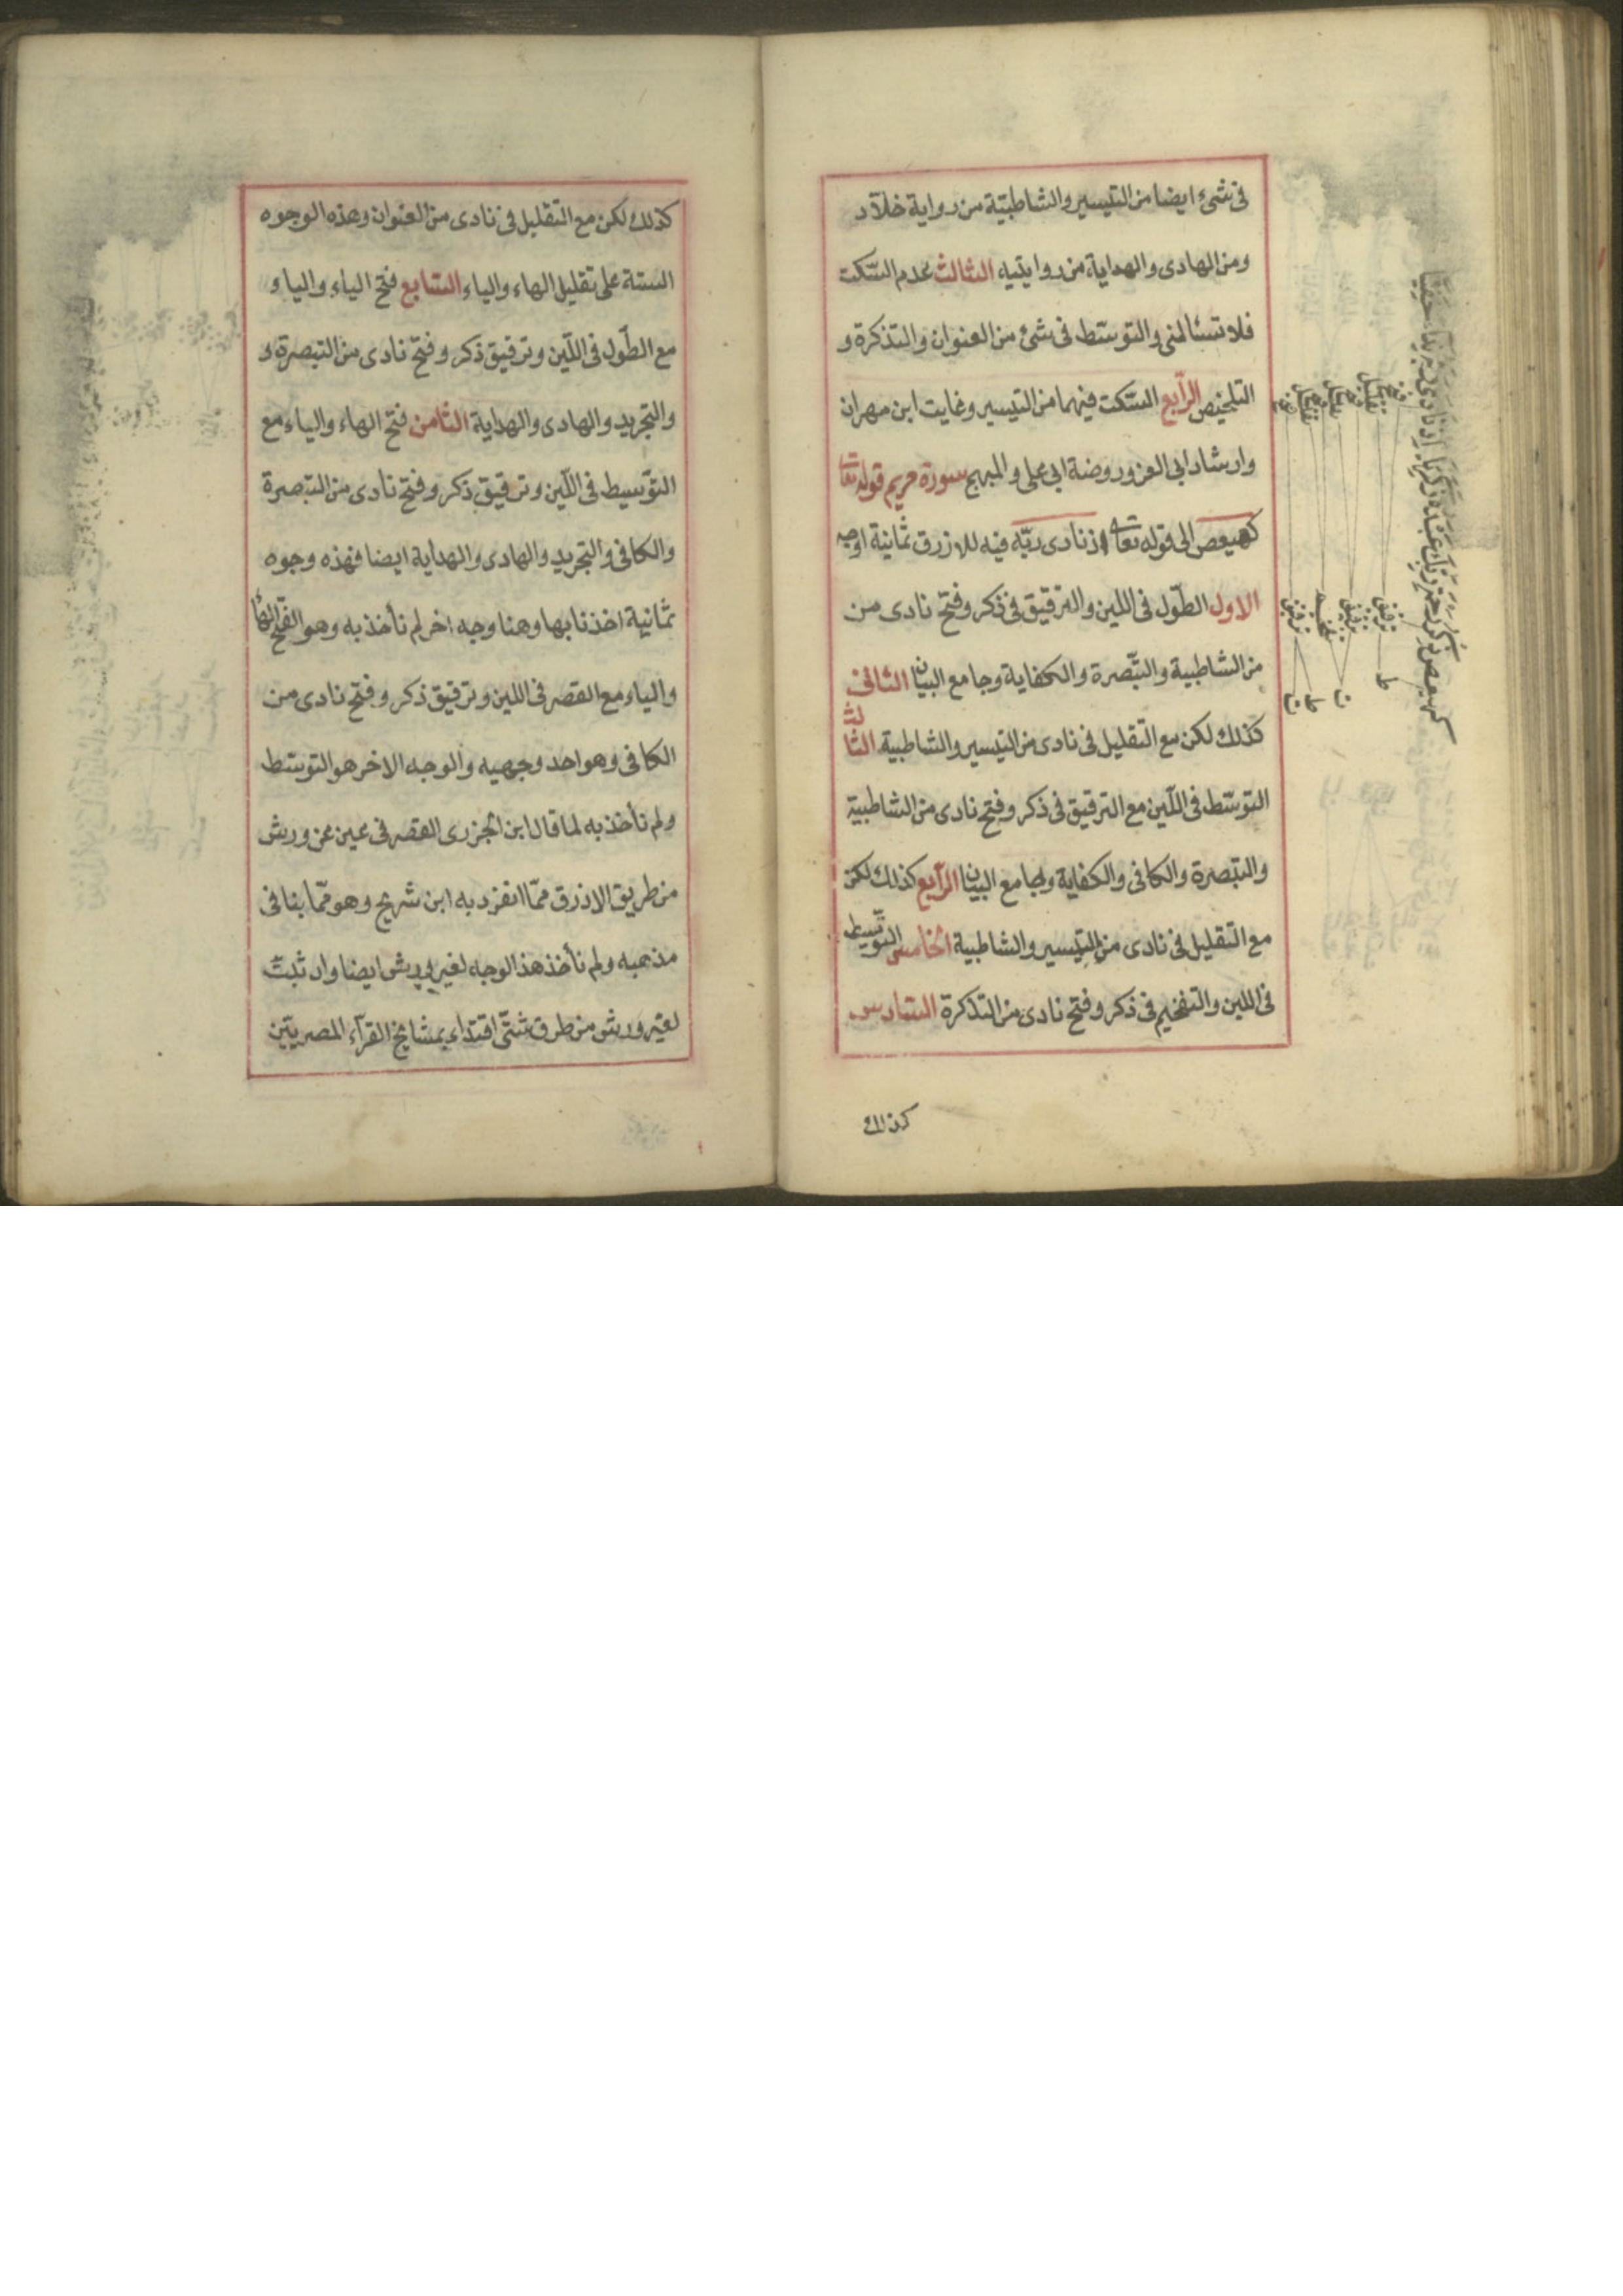 فى شىء ايضا من التيسير والشاطبيّة من رواية خلّاد
ومن الهادى والهداية من روايتيه الثالث عدم السّكت
فلا تسئالنى والتوسّط فى شىء من العنوان والتذكرة و
التلخيص الرّابع السّكت فيهما من التيسير وغايت ابن مهران
وارشاد ابى العز وروضة ابى على والمبهج سورة مريم قوله تعا
كهيعص الى قوله تعا اذ نادى ربّه فيه للازرق ثمانية اوجه
الاول الطّول فى اللين والترقيق فى ذكر وفتح نادى من
من الشاطبية والتّبصرة والكفاية وجامع البيان الثانى
كذلك لكن مع التّقليل فى نادى من التيسير والشاطبية الثالث
التوسّط فى اللّين مع الترقيق فى ذكر وفتح نادى من الشاطبية
والتبصرة والكافى والكفاية وجامع البيان الرّابع كذلك لكن
مع التّقليل فى نادى من التيسير والشاطبية الخامس التوسّط
فى اللين والتفخيم فى ذكر وفتح نادى من التذكرة السّادس
كذلك
كهيعص ذكر رحمت ربك عبده زكريا اذ نادى ربه نداء خفيّا
فتح تقليل فتح تقليل فتح تقليل
ترقيق ترقيق تفخيم ترقيق
ط ت ط ت
كذلك لكن مع التّقليل فى نادى من العنوان وهذه الوجوه
الستة على تقليل الهاء والياء السّابع فتح الياء واليا و
مع الطّول فى اللّين وترقيق ذكر وفتح نادى من التبصرة و
والتجريد والهادى والهداية الثامن فتح الهاء والياء مع
التوّسيط فى اللّين وترقيق ذكر وفتح نادى من التبصرة
والكافى والتجريد والهادى والهداية ايضا فهذه وجوه
ثمانية اخذنا بها وهنا وجه اخر لم نأخذ به وهو الفتح الهاء
والياء مع القصر فى اللين وترقيق ذكر وفتح نادى من
الكافى وهو احد وجهيه والوجه الاخر هو التوسّط
ولم نأخذ به لما قال ابن الجزرى القصر فى عين عن ورش
من طريق الازرق ممّا انفرد به ابن شريح وهو ممّا ينافى
مذهبه ولم نأخذ هذ الوجه لغير ورش ايضا وان ثبت
لغير ورش من طرق شتّى اقتداء بمشايخ القرّاء المصريّين